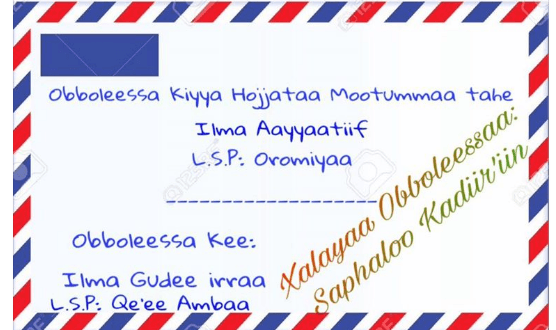 Obboleessa Kiyya Hojjataa Mootummaa tahe
Ilma Aayyaatiif
L.S.P: Oromiyaa
--------------------
Obboleessa Kee:
Ilma Gudee irraa
L.S.P: Qe'ee Ambaa
Xalayaa Obboleessaa:
Saphaloo Kadiir'iin